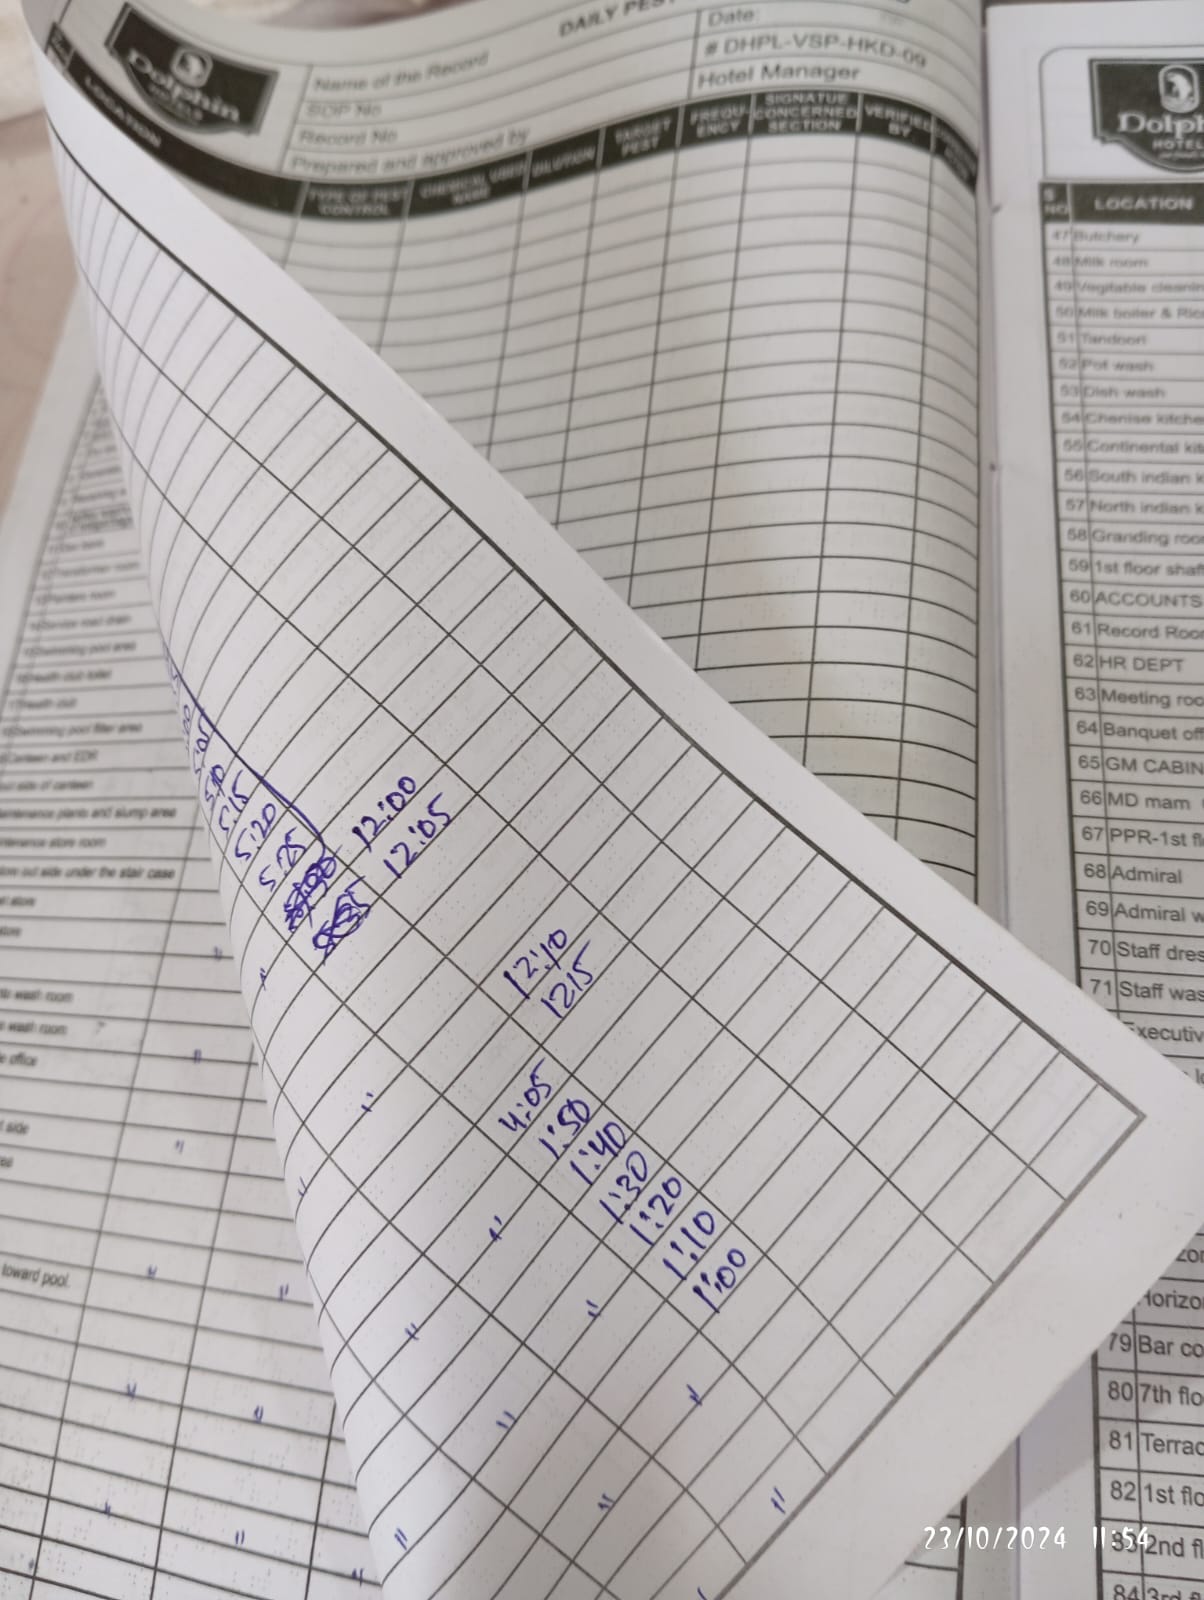 DAILY PES
Dolphin
HOTELS
Name of the Record
SOP No
Record No
Prepared and approved by
Date:
# DHPL-VSP-HKD-09
Hotel Manager
LOCATION
TYPE OF PEST CONTROL
CHEMICAL USED NAME
DILUTION
TARGET PEST
FREQU-ENCY
SIGNATUE CONCERNED SECTION
VERIFIED BY
5:05
5:10
5:15
5:20
5:25
12:00
12:05
12:10
1215
4:05
1:50
1:40
1:30
1:20
1:10
1:00
Service road drain
Swimming pool area
Health club toilet
Health club
Swimming pool filter area
Canteen and EDR
out side of canteen
plants and slump area
store room
out side under the stair case
store
wash room
wash room
office
side
toward pool.
Dolph
HOTEL
S NO
LOCATION
47 Butchery
48 Milk room
49 Vegitable cleanin
50 Milk boiler & Ric
51 Tandoori
52 Pot wash
53 Dish wash
54 Chenise kitche
55 Continental kit
56 South indian k
57 North indian k
58 Granding roo
59 1st floor shaft
60 ACCOUNTS
61 Record Roo
62 HR DEPT
63 Meeting roo
64 Banquet off
65 GM CABIN
66 MD mam
67 PPR-1st fl
68 Admiral
69 Admiral w
70 Staff dres
71 Staff was
Executiv
Horizon
79 Bar co
80 7th flo
81 Terrac
82 1st flo
83 2nd fl
84 3rd f
23/10/2024 11:54